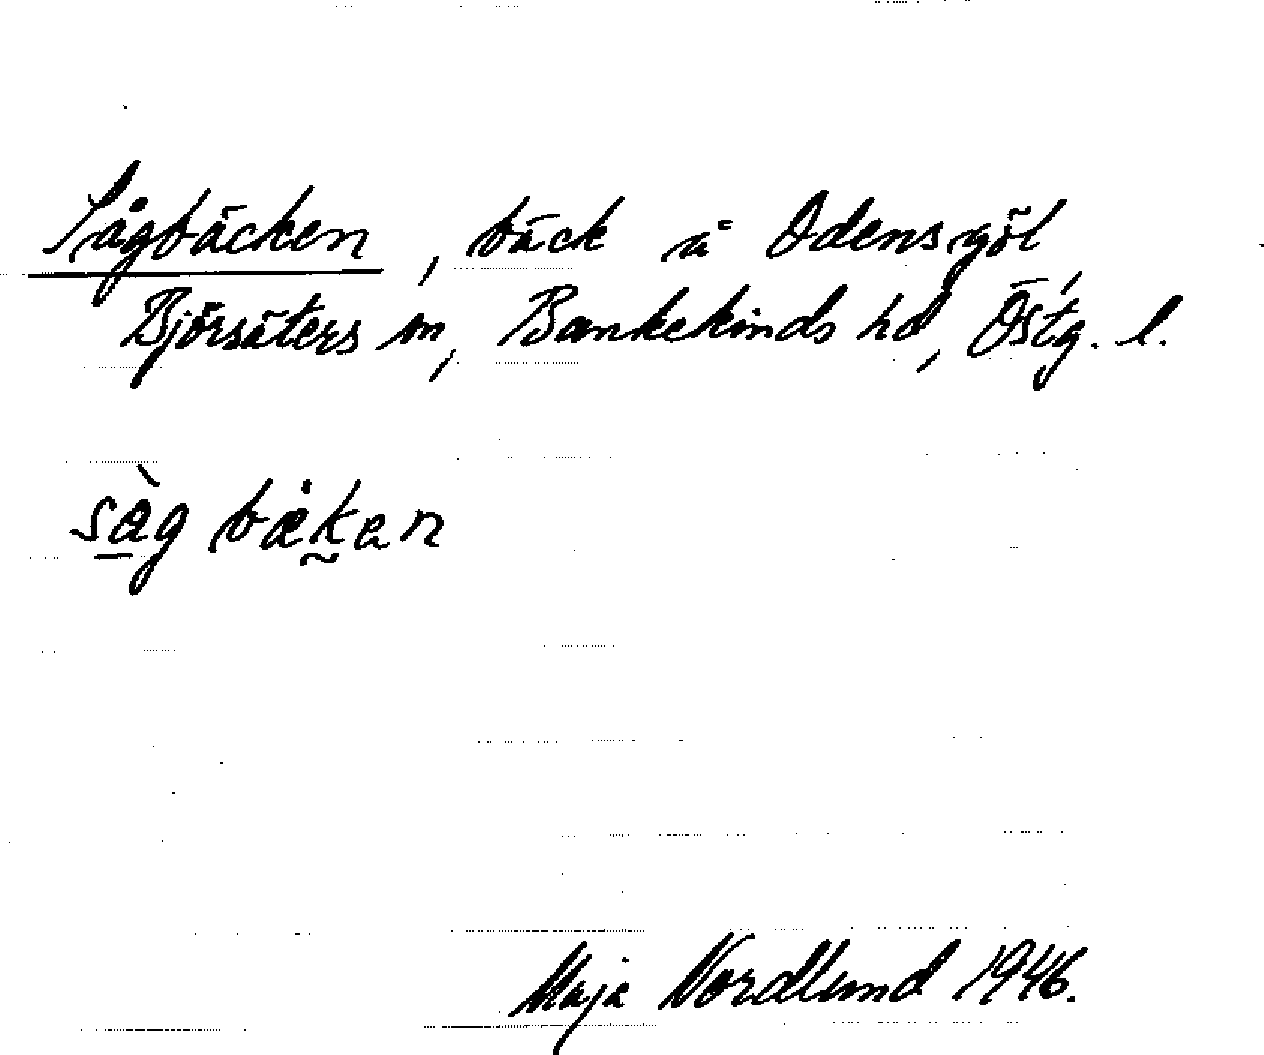 Sågbäcken, bäck å Odensgöl,
Björsäters sn, Bankekinds hd, Östg. l.
såg bækan
Maja Nordlund 1946.